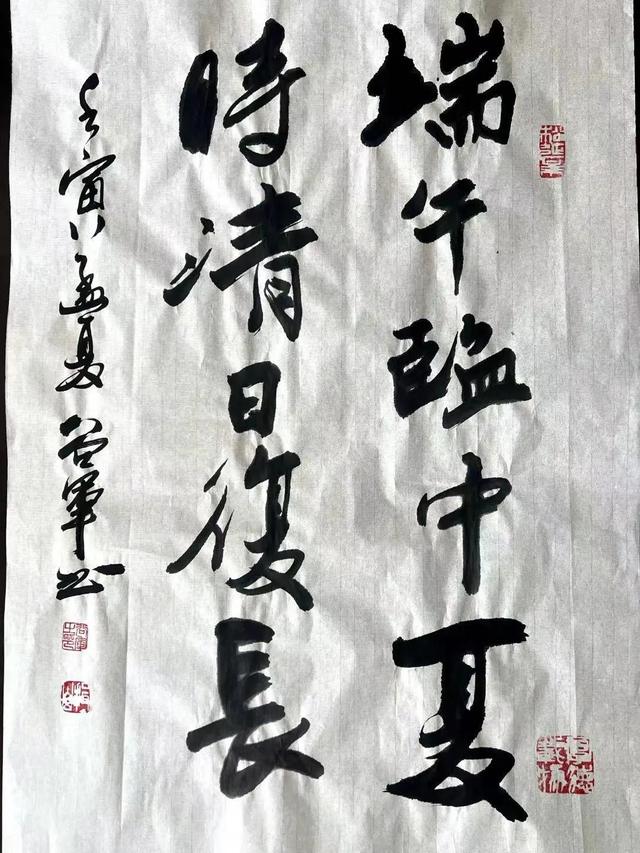 端午臨中夏
時清日復長
壬寅孟夏谷軍书